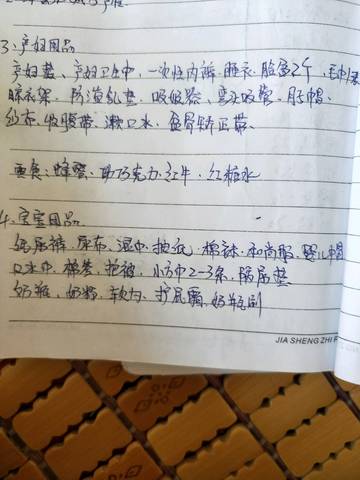 3、产妇用品
产妇垫、产妇卫生巾、一次性内裤、睡衣、脸盆2个、毛巾1条
晾衣架、防溢乳垫、吸奶器、弯头吸管、月子帽、
纱布、收腹带、漱口水、盆骨矫正带、
面食、蜂蜜、巧克力、红牛、红糖水
4、宝宝用品
纸尿裤、尿布、湿巾、抽纸、棉袜、和尚服、婴儿帽
口水巾、棉签、抱被、小方巾2-3条、隔尿垫
奶瓶、奶粉、软勺、护屁霜、奶瓶刷
JIA SHENG ZHI P